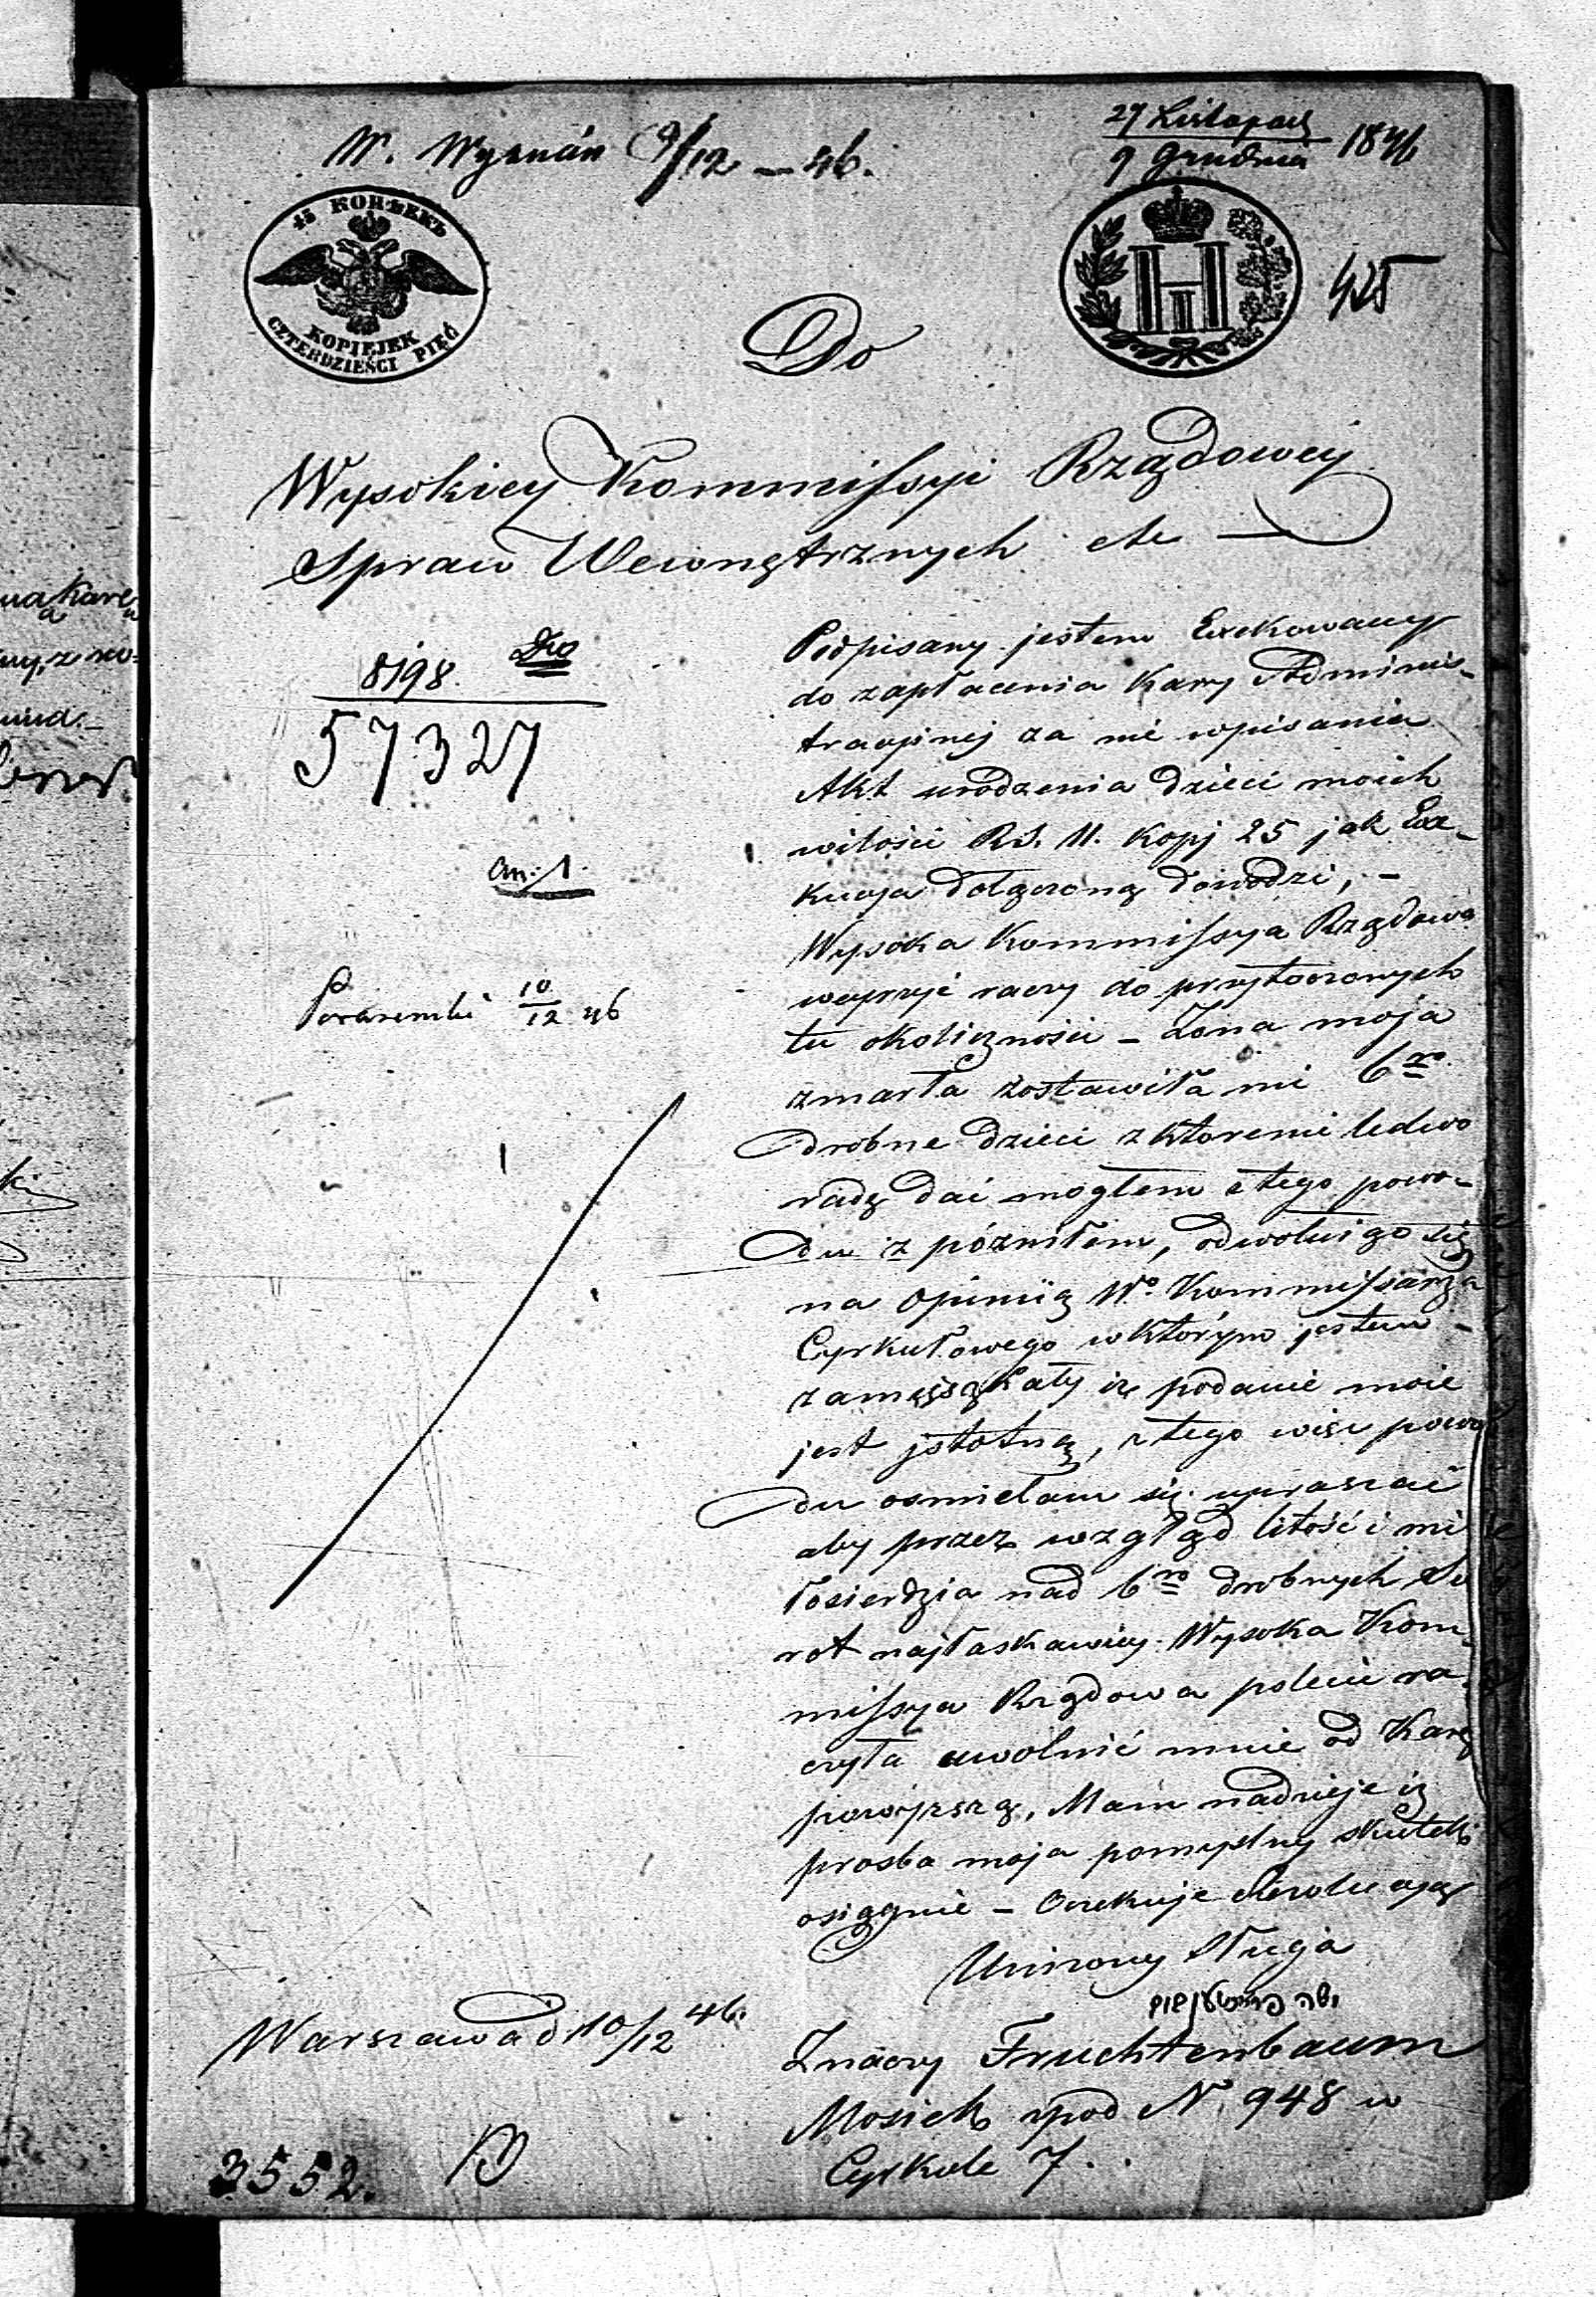 W. Wyznań 9/12 – 46.
27 Listopad
9 Grudnia 1846
45 КОПѢЕКЪ
KOPIEJEK
CZTERDZIEŚCI PIĘĆ
H
I
425
Do
Wysokiey Kommissyi Rządowey
Spraw Wewnętrznych etc
8198.
57327
an. 1.
10/12 46
Podpisany jestem Exekowany
do zapłacenia Kary Adminis-
tracyjnej za nie wpisania
Akt urodzenia dzieci moich
wilości RS. 11. Kopj 25 jak Exe-
kucyja dołączoną dowodzi, –
Wysoka Kommissya Rządowa
wejrzyć raczy do przytoczonych
tu okoliczności – Żona moja
zmarła zostawiła mi 6ro
drobne dzieci z ktoremi ledwo
radę dać mogłem z tego powo-
du z pózniłem, odwołuigo się
na Opiniią Wo Kommissarza
Cyrkułowego wktórym jestem –
zamęszkały iż podanie moie
jest jstotną, z tego więc powo
du osmielam się upraszać
aby przez wzgląd litość i mi
łosierdzia nad 6ro drobnych Sie
rot najłaskawiey Wysoka Kom-
missya Rządowa polecić ra-
czyła uwolnić mnie od Karę
powyższą, Mam nadzieje iż
prosba moja pomyslny skutek
osiągnie – Oczekuje Rezolucyją
Unizony Sługa
Znaczy Fruchtenbaum
Mosiek pod N. 948 w
Cyrkule 7.
Warszawa d 10/12 46.
3552.